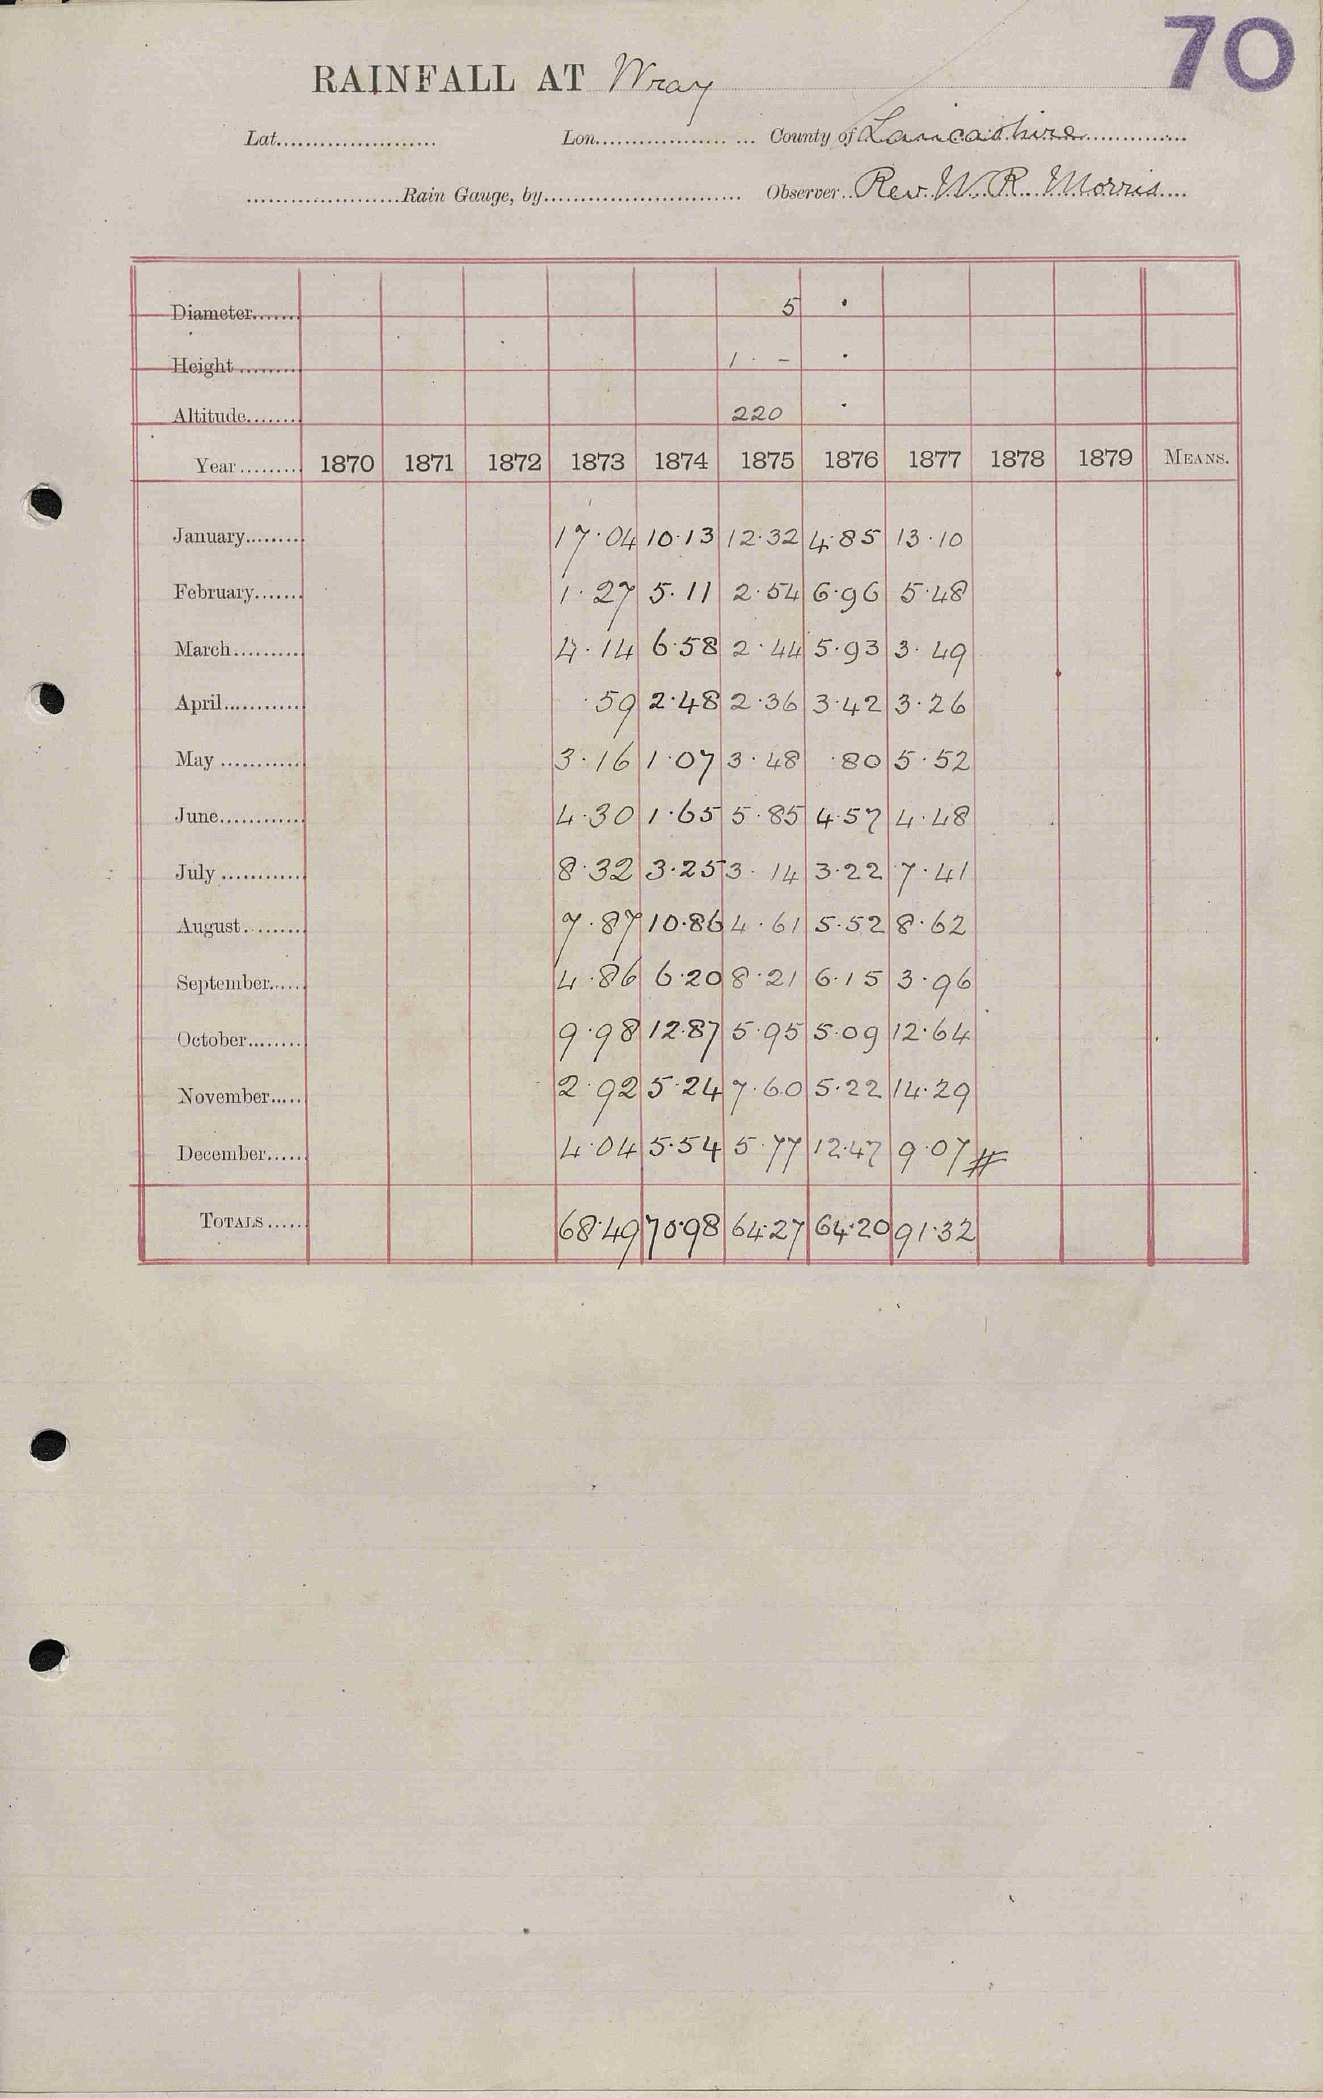 70
RAINFALL AT Wray
Lat...................... Lon.................. ... County of Lancashire
......................Rain Gauge, by............................ Observer.. Rev. W. R. Morris
Diameter....... 5 ·
Height ......... 1 · - ·
Altitude........ 220 ·
Year......... 1870 1871 1872 1873 1874 1875 1876 1877 1878 1879 MEANS.
January......... 17·04 10·13 12·32 4·85 13·10
February....... 1·27 5·11 2·54 6·96 5·48
March.......... 4·14 6·58 2·44 5·93 3·49
April........... ·59 2·48 2·36 3·42 3·26
May ........... 3·16 1·07 3·48 ·80 5·52
June............ 4·30 1·65 5·85 4·57 4·48
July ........... 8·32 3·25 3·14 3·22 7·41
August......... 7·87 10·86 4·61 5·52 8·62
September..... 4·86 6·20 8·21 6·15 3·96
October........ 9·98 12·87 5·95 5·09 12·64
November..... 2·92 5·24 7·60 5·22 14·29
December..... 4·04 5·54 5·77 12·47 9·07 #
TOTALS...... 68·49 70·98 64·27 64·20 91·32